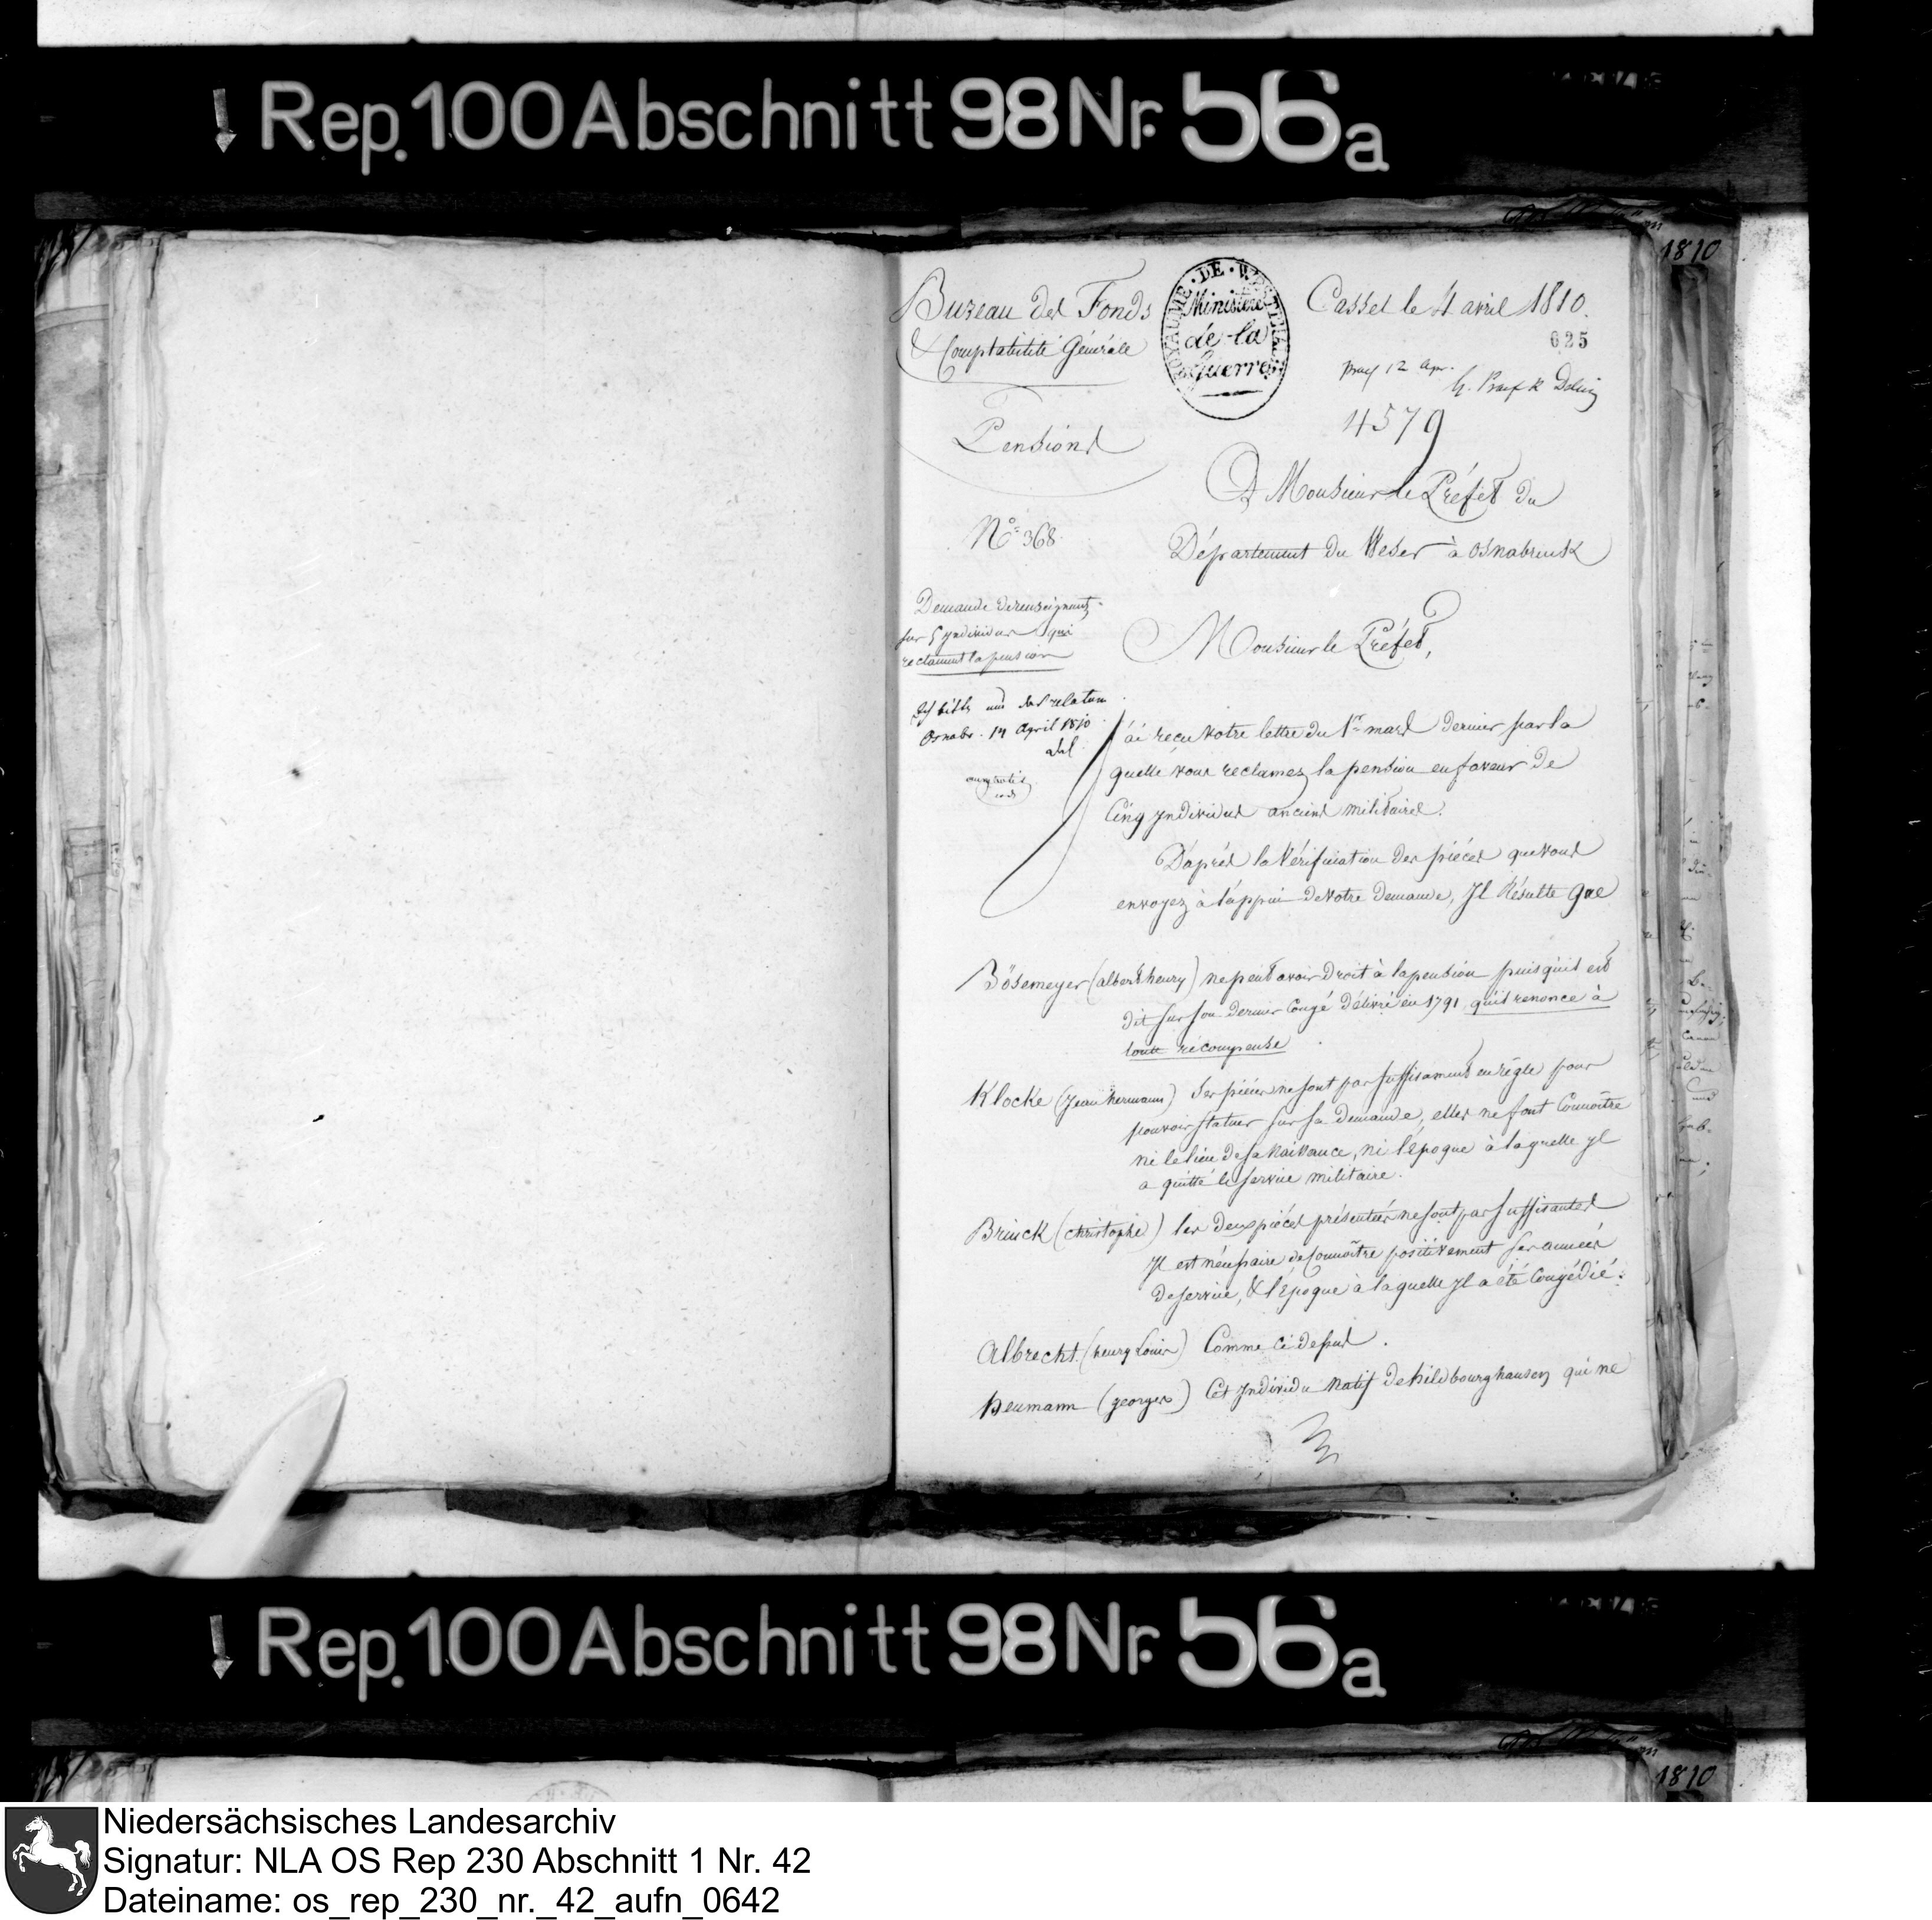 Rep. 100 Abschnitt 98 Nr. 56a
1810
Bureau des Fonds
& Comptabilité Générale
ROYAUME · DE · WESTPHALIE
Ministère
de la
Guerre
Cassel le 4 avril 1810.
025
12 apr.
4579
Pensions
A Monsieur le Préfet du
N.º 368.
Département du Weser à Osnabruck
Demande de renseignents
sur 5 Individus qui
reclament la pension
Monsieur le Préfet,
Ich bitte um das relatum
Osnabr. 14 April 1810
J'ai reçu votre lettre du 1er mars dernier par la
quelle vous reclamez la pension en faveur de
Cinq Individus anciens militaires.
D'après la Vérification des pièces que vous
envoyez à l'appui de votre demande, Il Résulte que
Bösemeyer (albert henry) ne peut avoir droit à la pension puisqu'il est
dit sur son dernier Congé délivré en 1791, qu'il renonce à
toute récompense
Klocke (Jean hermann) Ses pièces ne sont pas suffisament en règle pour
pouvoir statuer sur sa demande, elles ne font Connoître
ni le lieu de sa Naissance, ni l'époque à laquelle Il
a quitté le service militaire.
Brinck (christophe) les deux pièces présentées ne sont pas suffisantes
Il est nécessaire de Connoître positivement ses années
de service, & l'Epoque à laquelle Il a été Congédié.
Albrecht (henry Louis) Comme Ci dessus.
Neumann (georges) Cet Individu Natif de hildbourghausen qui ne
Rep. 100 Abschnitt 98 Nr. 56a
1810
Niedersächsisches Landesarchiv
Signatur: NLA OS Rep 230 Abschnitt 1 Nr. 42
Dateiname: os_rep_230_nr._42_aufn_0642